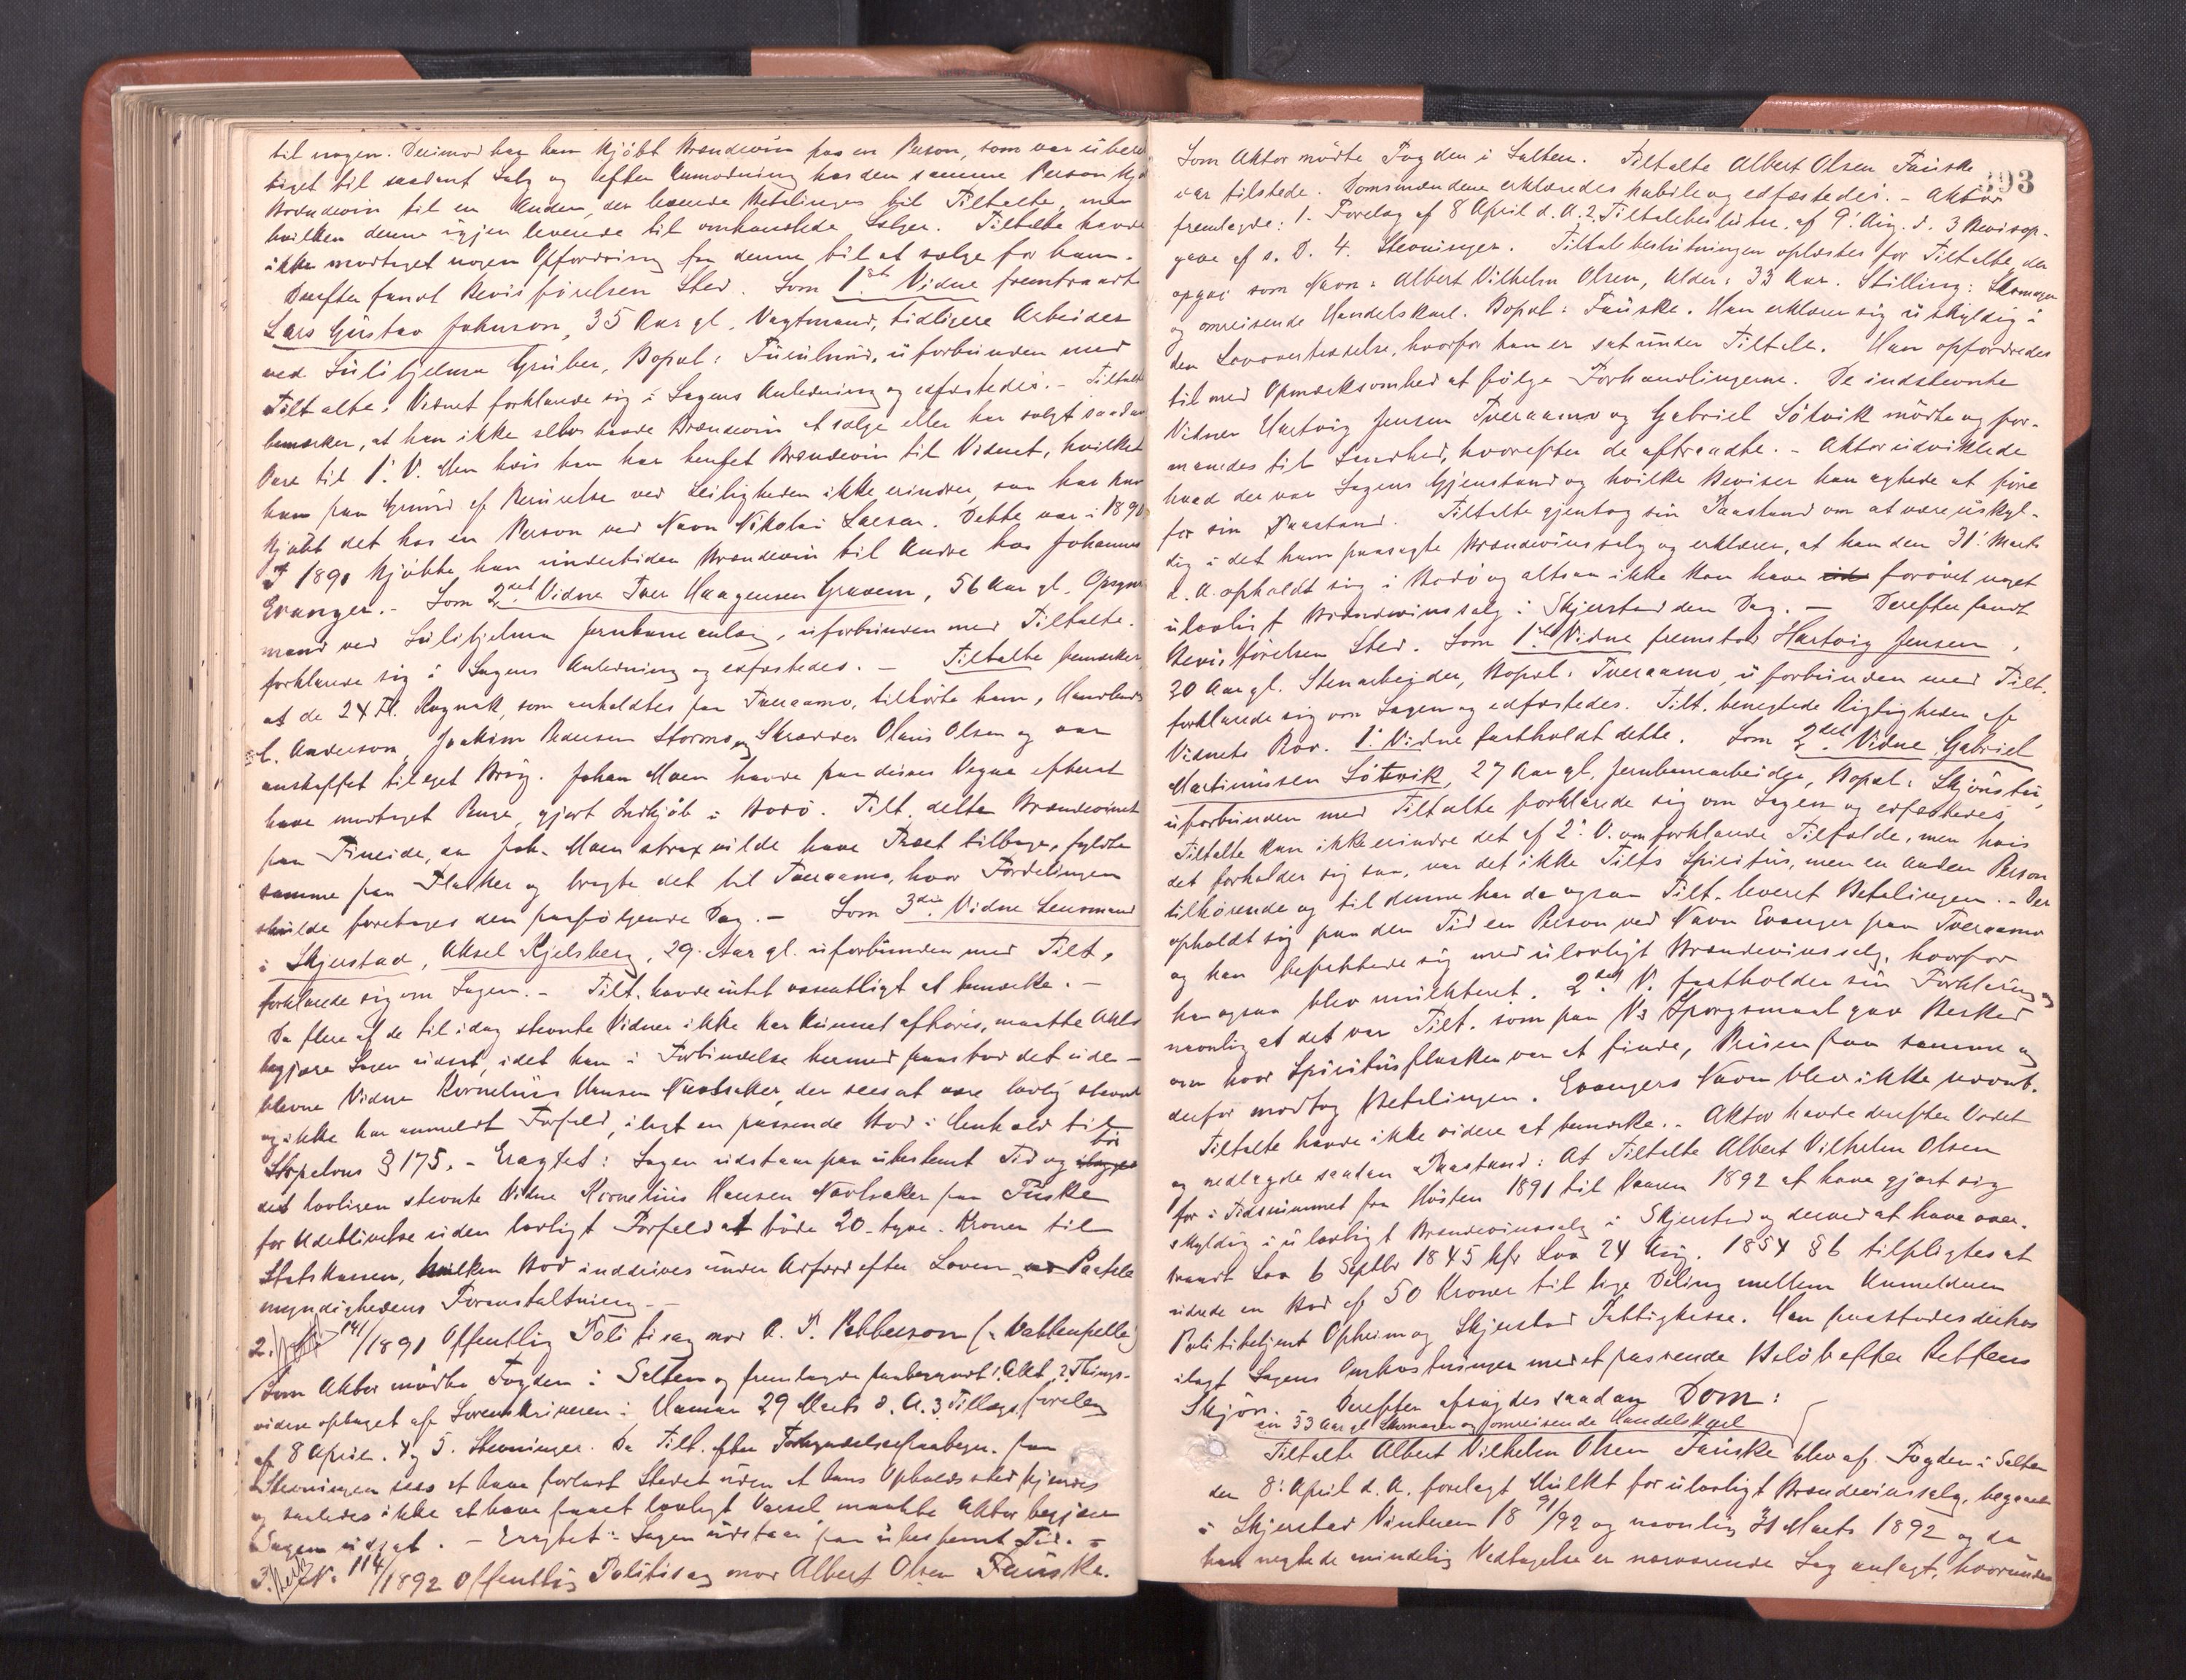 til nogen. Derimod har han kjöbt Brændevin paa en Person, som var uberet
tiget til saadant Salg og efter Anmodning har den samme Person
Brændevin til en Anden, der leverede Betalingen til Tiltalte, men
hvilken denne igjen leverede til omhandlede Sælger. Tiltalte havde
ikke modtaget nogen Opfordring fra denne til at sælge for ham.
Derefter fandt Bevisförelsen Sted. Som 1ste Vidne fremtraadte
Lars Gustav Johnson, 35 Aar gl. Vagtmand, tidligere Arbeider
ved Sulitjelma Gruber, Bopæl: Furulund, uforbunden med
Tiltalte. Vidnet forklarede sig i Sagens Anledning og edfæstedes. - Tiltalte
bemærker, at han ikke selv havde Brændevin at sælge eller har solgt saadan
Vare til 1. V. Men hvis han har hentet Brændevin til Vidnet, hvilket
han paa Grund af Beruselse ved Leiligheden ikke erindrer, saa har han
kjöbt det hos en Person ved Navn Nikolai Larsen. Dette var i 1890
I 1890 kjöbte han undertiden Brændevin til Andre hos Johannes
Evanger. - Som 2det Vidne Iver Haagensen Gravem, 56 Aar gl. Opsyns
mand ved Sulitjelma Jernbaneanlæg, uforbunden med Tiltalte.
forklarede sig i Sagens Anledning og edfæstedes. - Tiltalte bemærker,
at de 24 Fl. Kognak, som anholdtes paa Tveraamo, tilhörte ham, Handlende
C. Anderson, Joakim Pedersen Stormo og Skrædder Olaus Olsen og var
anskaffet til eget Brug. Johan Moen havde paa disses Vegne efterat
have modtaget Penge, gjort Indkjöb i Bodö. Tilt. delte Brændevinet
paa Fineide, da Joh. Moen strax vilde have Fadet tilbage, fyldte
samme paa Flasker og bragte det til Tveraamo, hvor Fordelingen
skulde foretages den paafölgende Dag. - Som 3die Vidne Lensmand
i Skjerstad, Aksel Kjelsberg, 29 Aar gl. uforbunden med Tilt.
forklarede sig om Sagen. - Tilt. havde intet væsentligt at bemærke. -
Da flere af de til idag stevnte Vidner ikke har kunnet afhöres, maatte Aktor
begjære Sagen udsat, idet han i Forbindelse hermed paastod det ude-
blevne Vidne Kornelius Hansen Navlsaker, der sees at være lovlig stevnt
og ikke har anmeldt Forfald, ilagt en passende Bod i Henhold til
Strpclovs § 175. - Eragtet: Sagen udstaar paa ubestemt Tid og bör
det lovligen stevnte Vidne Kornelius Hansen Navlsaker paa Fuske
for Udeblivelse uden lovligt Forfald at böde 20 - tyve - Kroner til
Statskassen, hvilken Bod inddrives under Adfærd efter Loven ved Paatale
myndighedens Foranstaltning. -
2. 141/1891 Offentlig Politisag mod A. P. Pettersson (Vattenpelle)
Som Aktor mödte Fogden i Salten og fremlagde paaberaabt: 1. Akt, 2. Things-
vidne optaget af Sorenskriveren i Hamar 29 Marts d. A. 3. Tillægsforelæg
af 8 April. 4 og 5. Stevninger. Da Tilt. efter Forkyndelsespaategn. paa
Stevningen sees at have forladt Stedet uden at hans Opholdssted kjendes
og saaledes ikke at have faaet lovligt Varsel, maatte Aktor begjære
Sagen udsat. - Eragtet: Sagen udstaar paa ubestemt Tid. -
3. No. 114/1892 Offentlig Politisag mod Albert Olsen Fauske.
393
Som Aktor mödte Fogden i Salten. Tiltalte Albert Olsen Fauske
var tilstede. Domsmændene erklæredes habile og edfæstedes. - Aktor
fremlagde: 1. Forelæg af 8 April d. A. 2. Tiltalebeslutn. af 9. Aug. d. 3 Bevisop-
gave af s. D. 4. Stevninger. Tiltalebeslutningen oplæstes for Tiltalte, der
opgav som Navn: Albert Vilhelm Olsen, Alder: 33 Aar. Stilling: Skomager
og omreisende Handelskarl. Bopæl: Fauske. Han erklærer sig uskyldig i
den Lovovertrædelse, hvorfor han er sat under Tiltale. Han opfordredes
til med Opmærksomhed at fölge Forhandlingerne. De indstevnte
Vidner Hartvig Jensen Tveraamo og Gabriel Sötvik mödte og for-
manedes til Sandhed, hvorefter de aftraadte. - Aktor udviklede
hvad der var Sagens Gjenstand og hvilke Beviser han agtede at före
for sin Paastand. Tiltalte gjentog sin Paastand om at være uskyl-
dig i det ham paasagte Brændevinssalg og erklærer, at han den 31. Marts
d. A. opholdt sig i Bodö og altsaa ikke kan have forövet noget
ulovligt Brændevinssalg i Skjerstad den Dag. - Derefter fandt
Bevisförelsen Sted. Som 1ste Vidne fremstod Hartvig Jensen,
30 Aar gl. Stenarbeider, Bopæl: Tveraamo, uforbunden med Tilt.
forklarede sig om Sagen og edfæstedes. Tilt. benegtede Rigtigheden af
Vidnets Prov. 1. Vidne fastholdt dette. Som 2det Vidne Gabriel
Martinussen Sötvik, 27 Aar gl. Jernbanearbeider, Bopæl: Skjönstu,
uforbunden med Tiltalte forklarede sig om Sagen og edfæstedes
Tiltalte kan ikke erindre det af 2. V. omforklarede Tilfælde, men hvis
det forholder sig saa, var det ikke Tilts Spiritus, men en anden Person
tilhörende og til denne har da ogsaa Tilt. leveret Betalingen. - Der
opholdt sig paa den Tid en Person ved Navn Evanger paa Tveraamo
og han befattede sig med ulovligt Brændevinssalg, hvorfor
han ogsaa blev mulkteret. 2det V. fastholder sin Forklaring og
navnlig at det var Tilt. som paa Vs Spörgsmaal gav Besked
om hvor Spiritusflasken var at finde, Prisen paa samme og
derfor modtog Betalingen. Evangers Navn blev ikke nævnt.
Tiltalte havde ikke videre at bemærke. - Aktor havde derefter Ordet
og nedlagde saadan Paastand: At Tiltalte Albert Vilhelm Olsen
for i Tidsrummet fra Hösten 1891 til Vaaren 1892 at have gjort sig
skyldig i ulovligt Brændevinssalg i Skjerstad og derved at have over-
traadt Lov 6 Septbr 1845 kfr Lov 24 Aug. 1854 § 6 tilpligtes at
udrede en Bod af 50 Kroner til lige Deling mellem Anmelderen
Politibetjent Opheim og Skjerstad Fattigkasse. Han paastodes derhos
ilagt Sagens Omkostninger med et passende Belöb efter Rettens
Skjön. Derefter afsagdes saadan Dom:
en 33 Aar gl Skomager og omreisende Handelskarl
Tiltalte Albert Vilhelm Olsen Fauske blev af Fogden i Salten
den 8. April d. A. forelagt Mulkt for ulovligt Brændevinssalg, begaaet
i Skjerstad Vinteren 1891/92 og navnlig 31 Marts 1892 og da
han negtede mindelig Vedtagelse er nærværende Sag anlagt, hvorunder